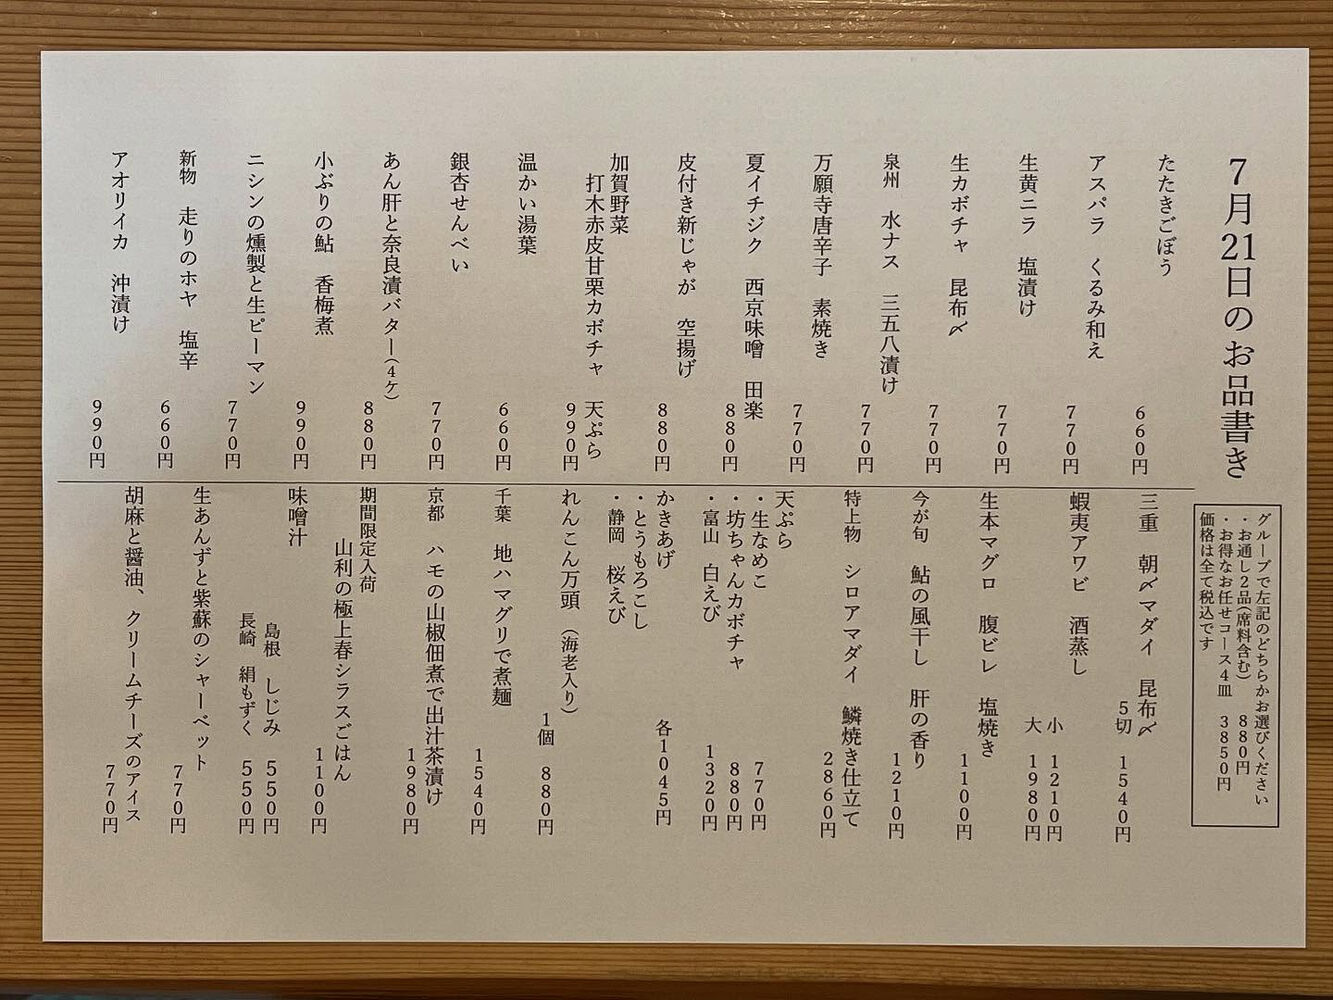 7月21日のお品書き
グループで左記のどちらかお選びください
・お通し2品(席料含む) 880円
・お得なお任せコース4皿 3850円
価格は全て税込です
たたきごぼう 660円
アスパラ くるみ和え 770円
生黄ニラ 塩漬け 770円
生カボチャ 昆布〆 770円
泉州 水ナス 三五八漬け 770円
万願寺唐辛子 素焼き 770円
夏イチジク 西京味噌 田楽 880円
皮付き新じゃが 空揚げ 880円
加賀野菜
打木赤皮甘栗カボチャ 天ぷら 990円
温かい湯葉 660円
銀杏せんべい 770円
あん肝と奈良漬バター(4ケ) 880円
小ぶりの鮎 香梅煮 990円
ニシンの燻製と生ピーマン 770円
新物 走りのホヤ 塩辛 660円
アオリイカ 沖漬け 990円
三重 朝〆マダイ 昆布〆
5切 1540円
蝦夷アワビ 酒蒸し
小 1210円
大 1980円
生本マグロ 腹ビレ 塩焼き 1100円
今が旬 鮎の風干し 肝の香り 1210円
特上物 シロアマダイ 鱗焼き仕立て 2860円
天ぷら
・生なめこ 770円
・坊ちゃんカボチャ 880円
・富山 白えび 1320円
かきあげ 各1045円
・とうもろこし
・静岡 桜えび
れんこん万頭 (海老入り)
1個 880円
千葉 地ハマグリで煮麺 1540円
京都 ハモの山椒佃煮で出汁茶漬け 1980円
期間限定入荷
山利の極上春シラスごはん 1100円
味噌汁
島根 しじみ 550円
長崎 絹もずく 550円
生あんずと紫蘇のシャーベット 770円
胡麻と醤油、クリームチーズのアイス 770円